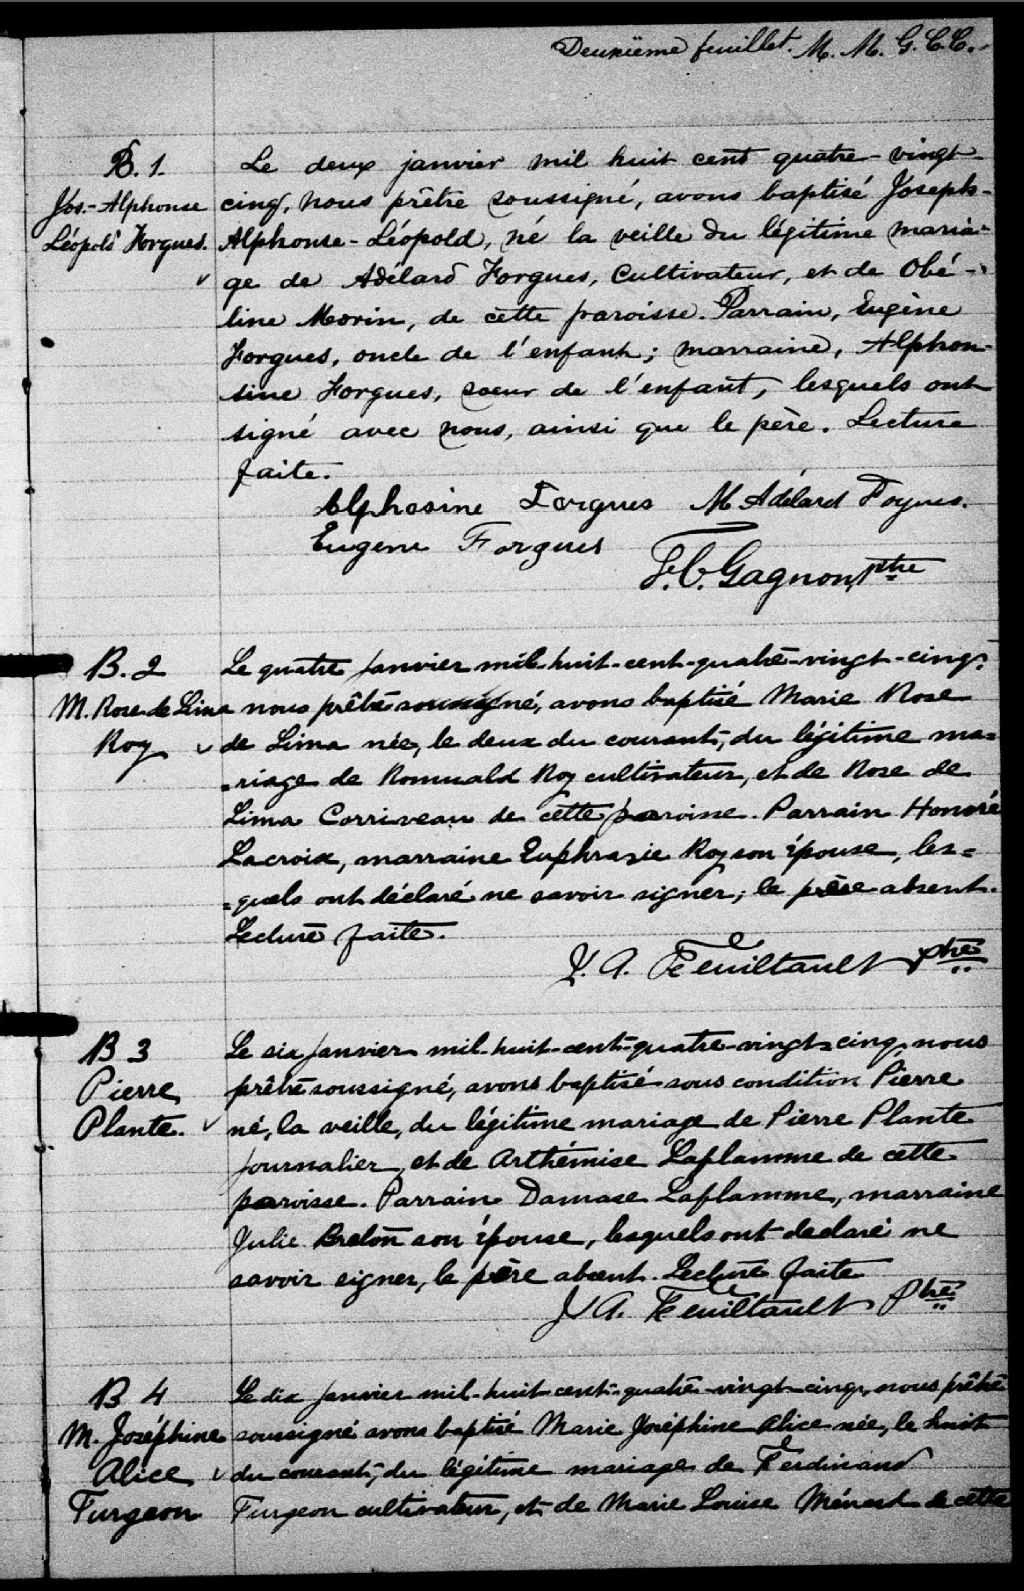 Deuxième feuillet. M. M. G. C. C.
B. 1.
Jos.-Alphonse
Léopold Forgues.
Le deux janvier mil huit cent quatre-vingt-
cinq, nous prêtre soussigné, avons baptisé Joseph-
Alphonse-Léopold, né la veille du légitime maria-
ge de Adélard Forgues, Cultivateur, et de Obé-
line Morin, de cette paroisse. Parrain, Eugène
Forgues, oncle de l'enfant; marraine, Alphon-
sine Forgues, soeur de l'enfant, lesquels ont
signé avec nous, ainsi que le père. Lecture
faite.
Alphosine Forgues M Adélard Forgues.
Eugene Forgues
F. C. Gagnon, Ptre
B. 2
M. Rose de Lima
Roy
Le quatre janvier mil-huit-cent-quatre-vingt-cinq,
nous prêtre soussigné, avons baptisé Marie Rose
de Lima née, le deux du courant, du légitime ma=
=riage de Romuald Roy cultivateur, et de Rose de
Lima Corriveau de cette paroisse. Parrain Honoré
Lacroix, marraine Euphrasie Roy son épouse, les=
=quels ont déclaré ne savoir signer; le père absent.
Lecture faite.
J. A. Feuiltault ptre
B 3
Pierre
Plante.
Le six janvier mil-huit-cent-quatre-vingt-cinq, nous
prêtre soussigné, avons baptisé sous condition Pierre
né, la veille, du légitime mariage de Pierre Plante
journalier, et de Arthémise Laflamme de cette
paroisse. Parrain Damase Laflamme, marraine
Julie Breton son épouse, lesquels ont declaré ne
savoir signer, le père absent. Lecture faite
J A. Feuiltault Ptre
B 4
M. Joséphine
Alice
Turgeon
Le dix janvier mil-huit cent-quatre-vingt-cinq, nous prêtre
soussigné avons baptisé Marie Joséphine Alice née, le huit
du courant, du légitime mariage de Ferdinand
Turgeon cultivateur, et de Marie Louise Ménard de cette